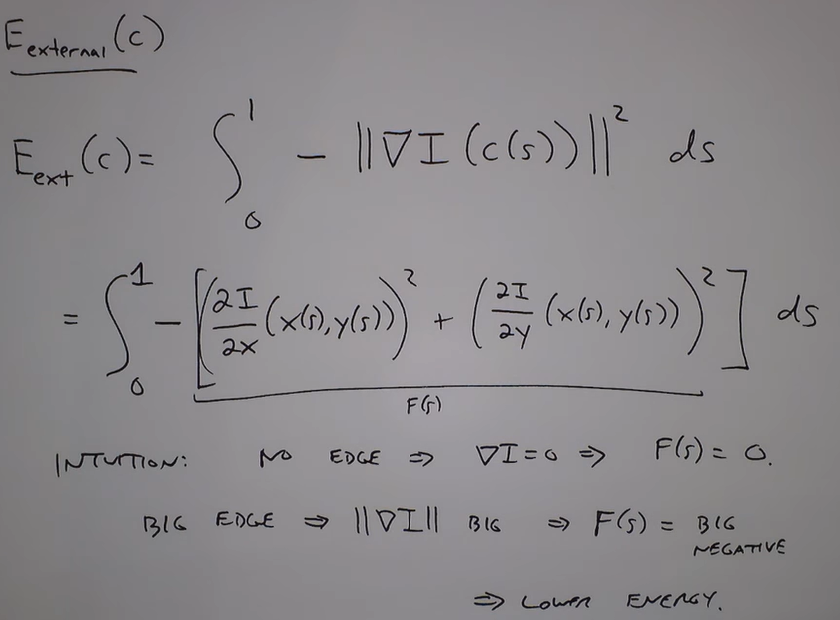 E_external(c)
E_ext(c) = ∫₀¹ − ||∇I(c(s))||² ds
= ∫₀¹ − [(∂I/∂x (x(s), y(s)))² + (∂I/∂y (x(s), y(s)))²] ds
F(s)
INTUITION: NO EDGE ⇒ ∇I = 0 ⇒ F(s) = 0.
BIG EDGE ⇒ ||∇I|| BIG ⇒ F(s) = BIG
NEGATIVE
⇒ LOWER ENERGY.